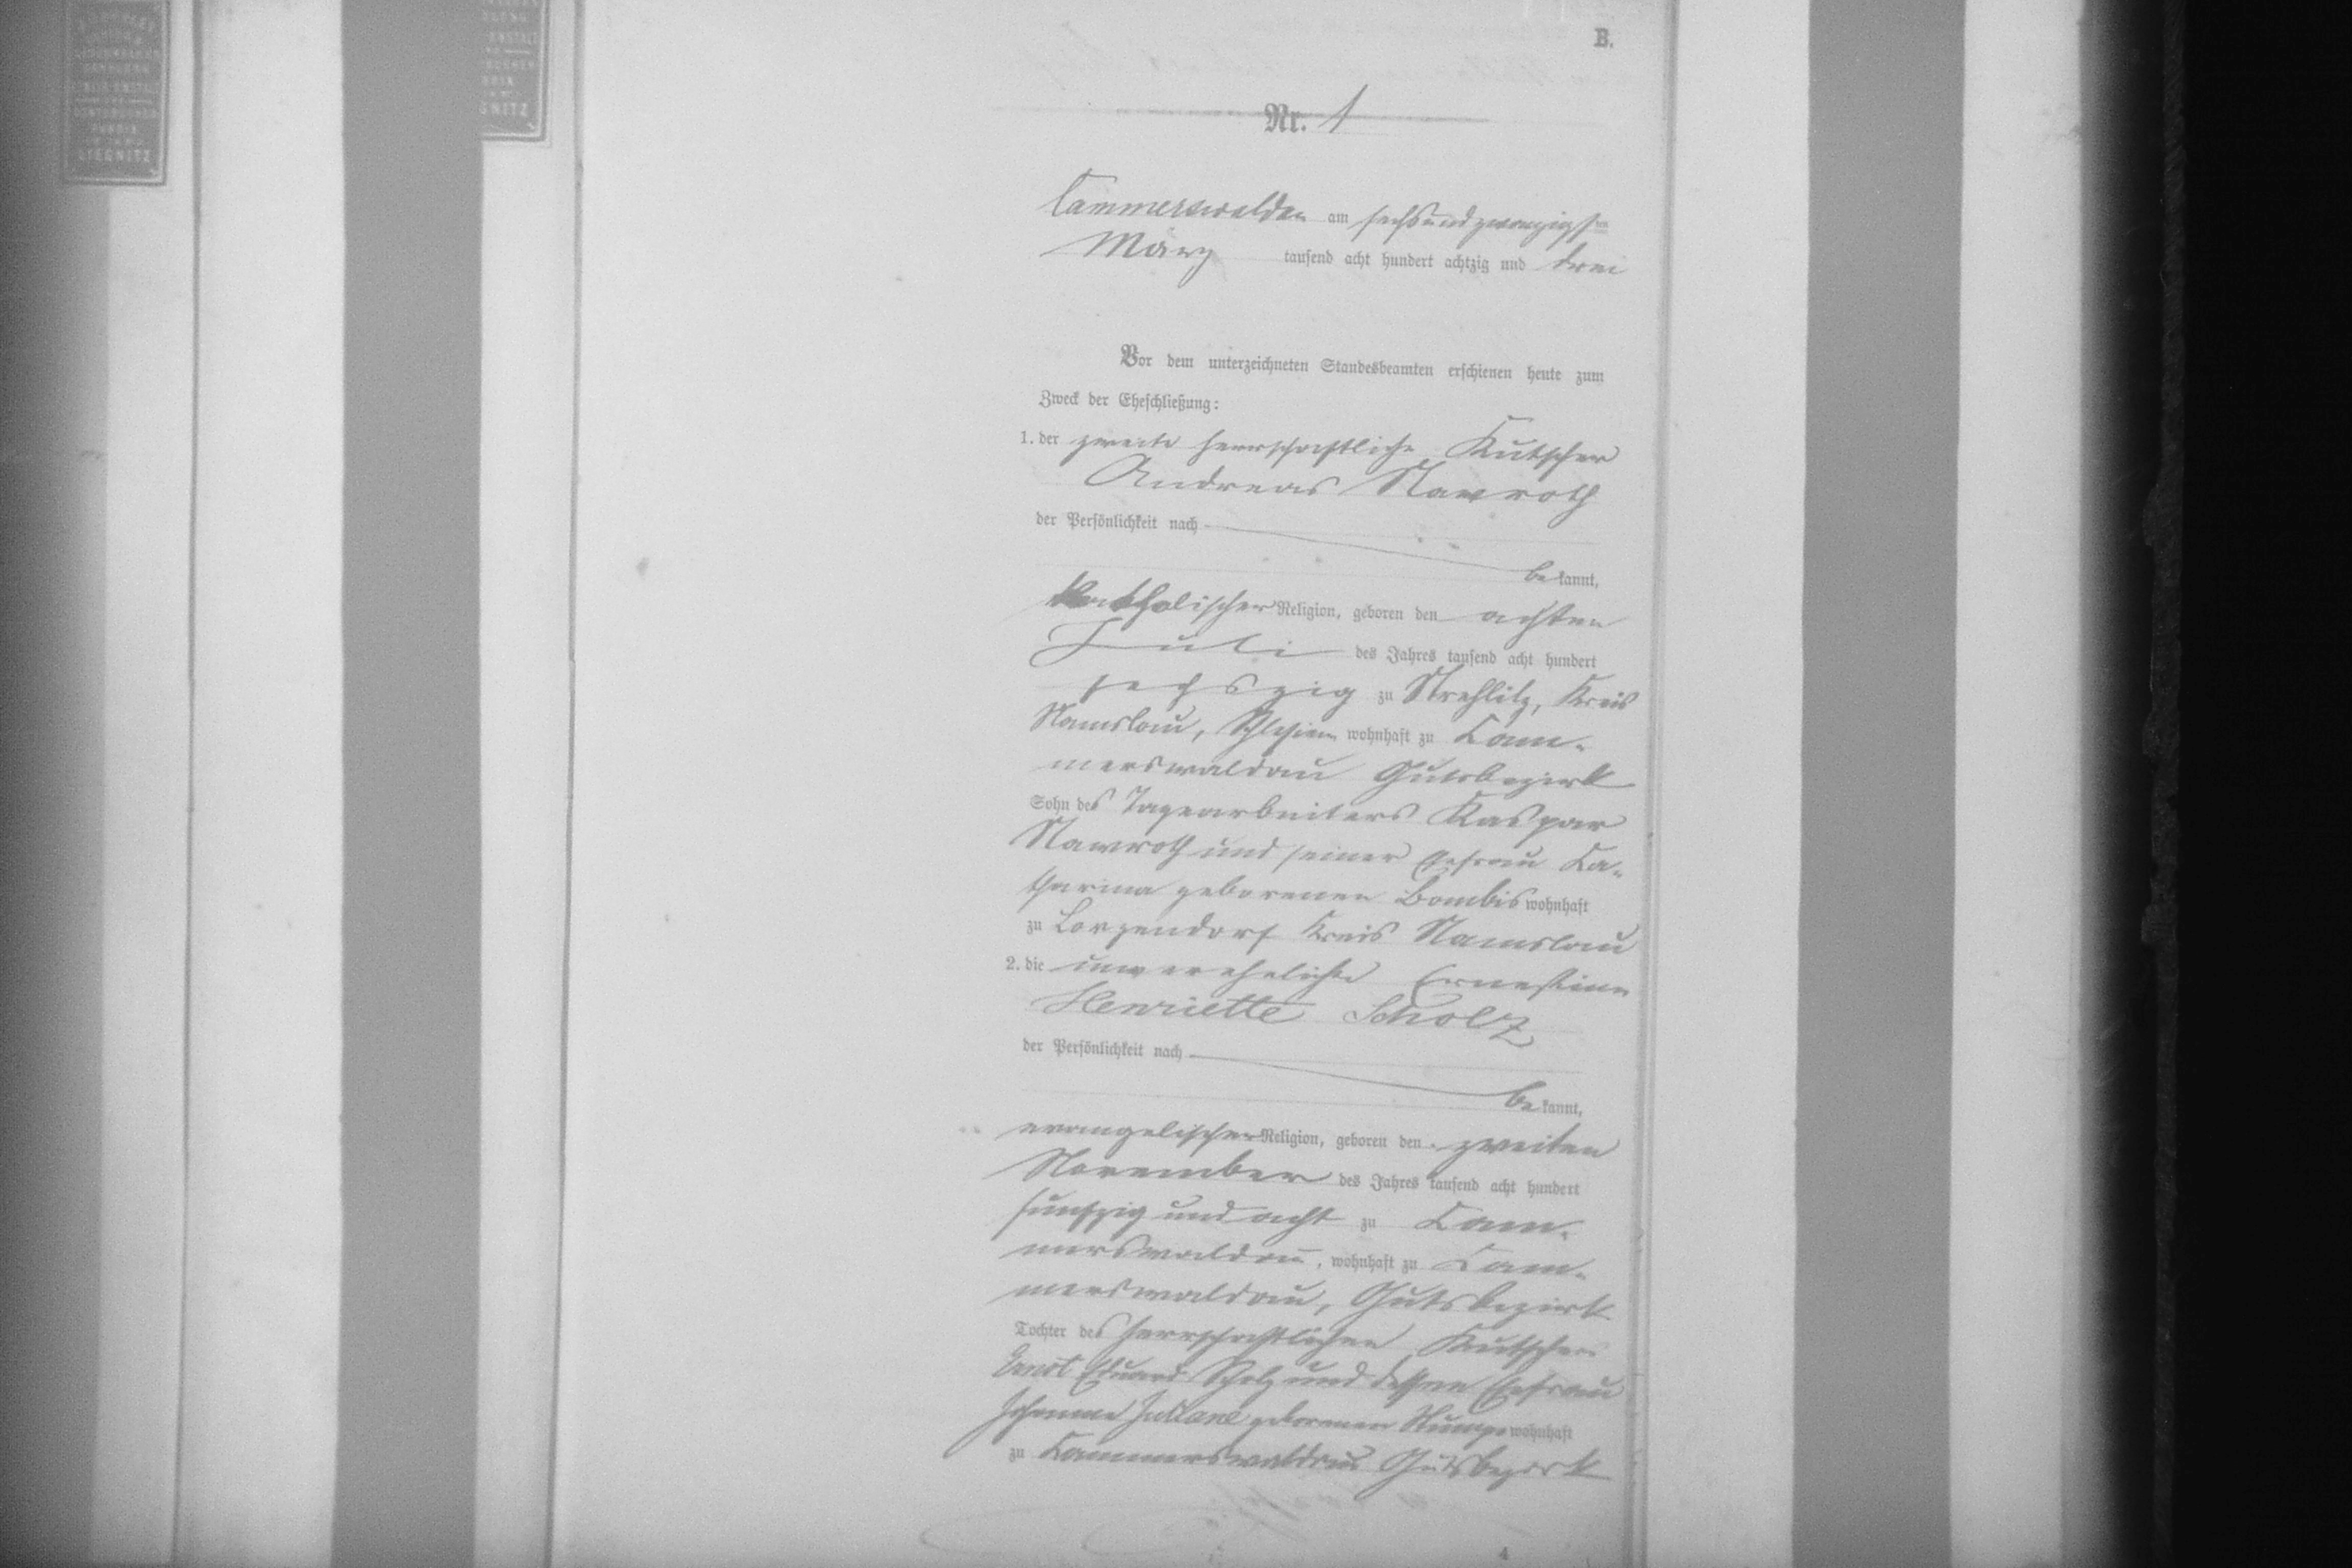 LIEGNITZ
GNITZ
B.
Nr. 1
Cammerswaldau am sechsundzwanzigsten
März tausend acht hundert achtzig und drei
Vor dem unterzeichneten Standesbeamten erschienen heute zum
Zweck der Eheschließung:
1. der zweite herrschaftliche Kutscher
Andreas Nawroth
der Persönlichkeit nach
bekannt,
katholischer Religion, geboren den achten
Juli des Jahres tausend acht hundert
sechszig zu Strehlitz, Kreis
Namslau, Schlesien wohnhaft zu Cam-
merswaldau Gutsbezirk
Sohn des Tagearbeiters Kaspar
Nawroth und seiner Ehefrau Ka-
tharina geborenen Bombis wohnhaft
zu Lorzendorf Kreis Namslau
2. die unverehelichte Ernestine
Henriette Scholz
der Persönlichkeit nach
bekannt,
evangelischer Religion, geboren den zweiten
November des Jahres tausend acht hundert
funfzig und acht zu Cam-
merswaldau, wohnhaft zu Cam-
merswaldau, Gutsbezirk
Tochter des herrschaftlichen Kutschers
Ernst Eduard Scholz und dessen Ehefrau
Johanne Juliane geborenen wohnhaft
zu Kammerswaldau Gutsbezirk
4